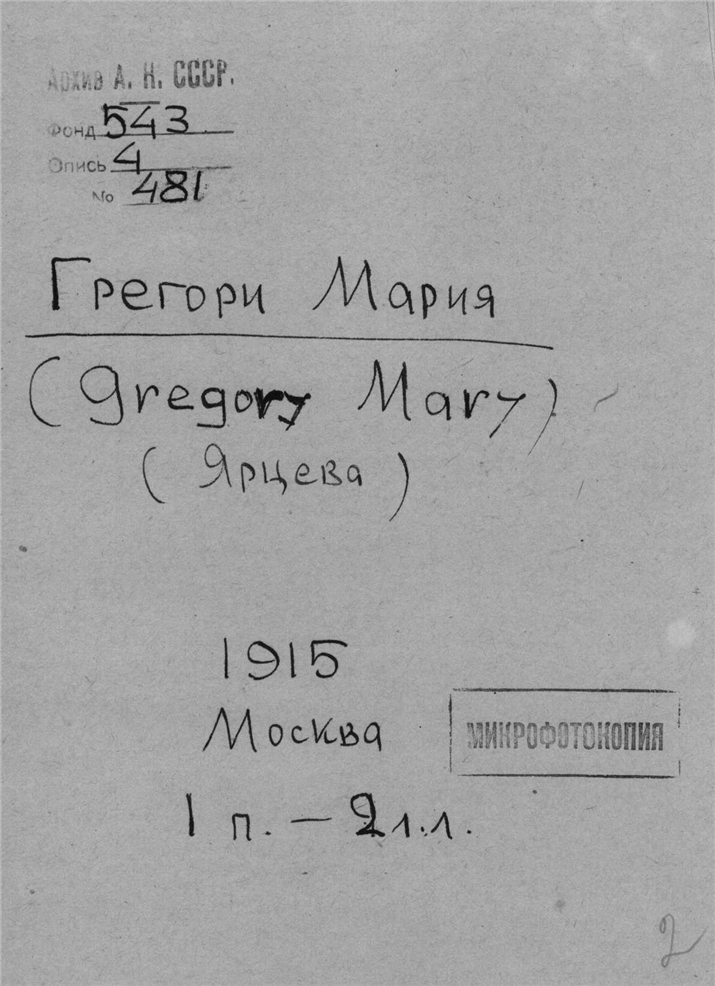 Архив А. Н. СССР.
Фонд 543
Опись 4
No 481
Грегори Мария
(Gregory Mary)
(Ярцева)
1915
Москва
МИКРОФОТОКОПИЯ
1 п. — 2 л.л.
2